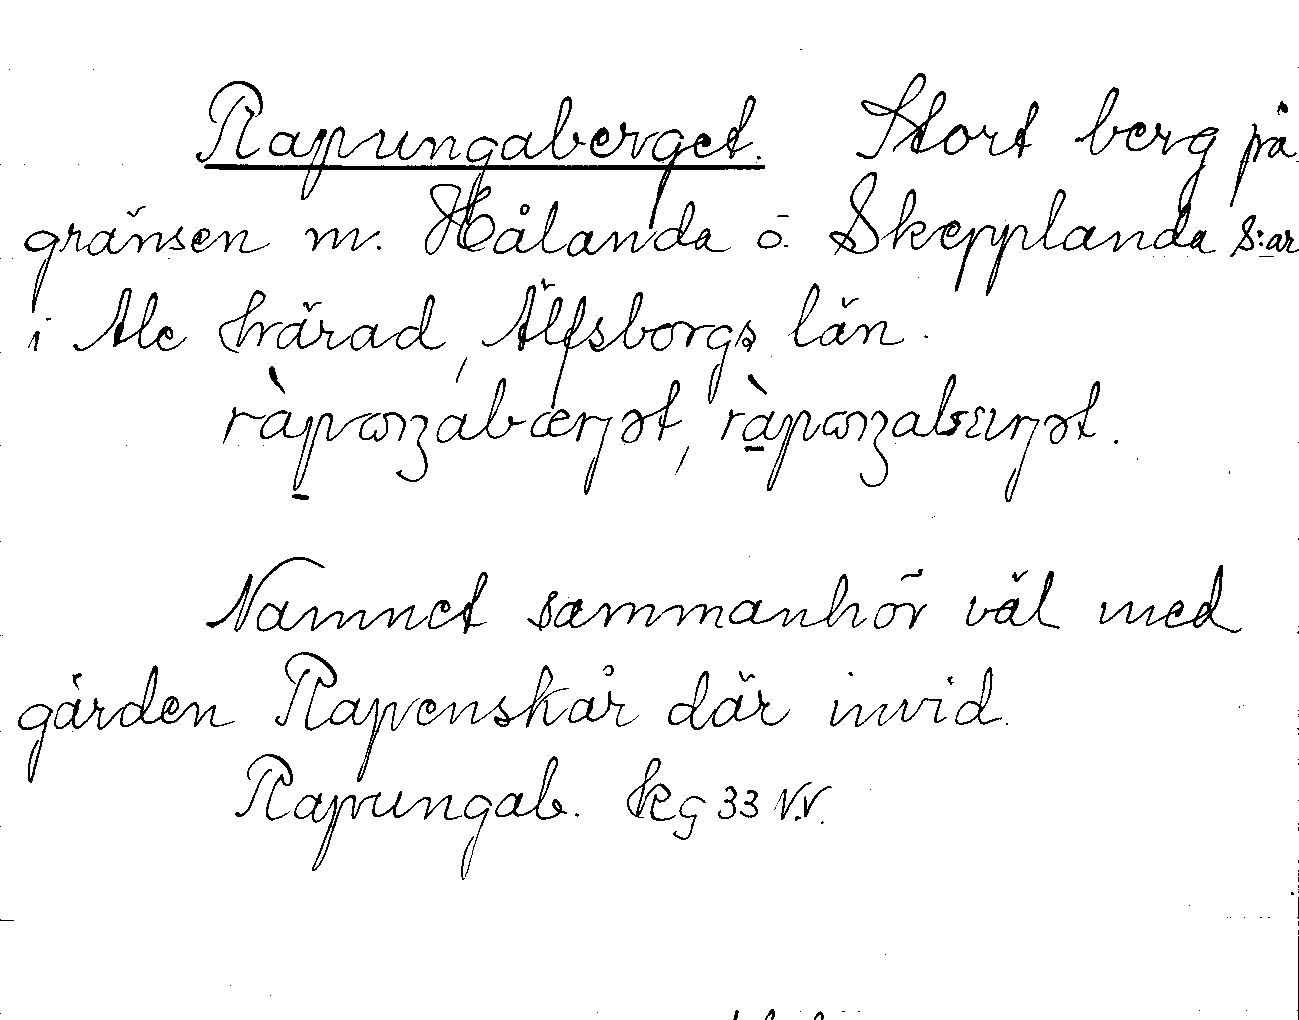 Rapungaberget. Stort berg på
gränsen m. Hålanda o. Skepplanda s:ar
i Ale härad, Älfsborgs län.
Namnet sammanhör väl med
gården Rapenskår där invid.
Rapungab. kg 33 N.V.